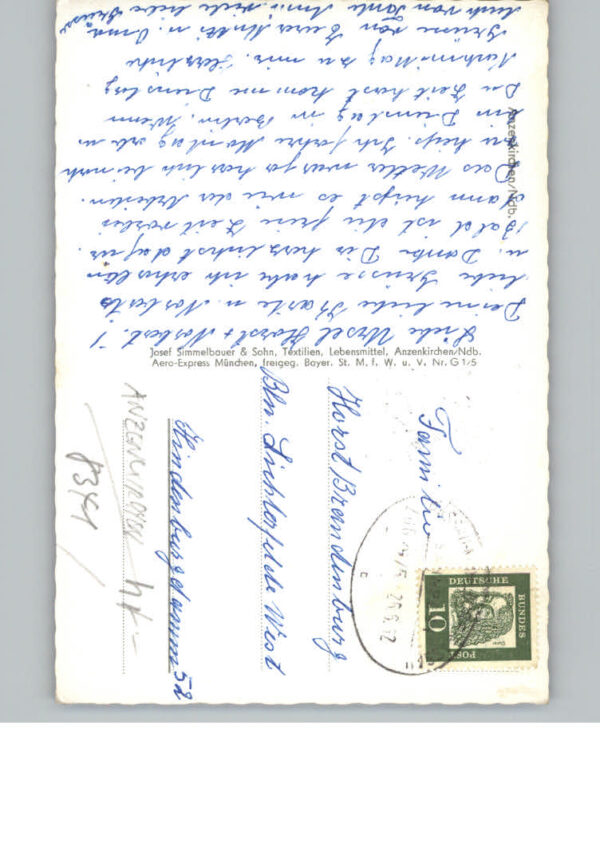 Liebe Ursel Horst + Norbert!
Deine liebe Karte u. Norberts
liebe Grüsse habe ich erhalten
u. Danke Dir herzlichst dafür.
Bald ist die freie Zeit vorbei
dann heißt es wieder Arbeiten.
Das Wetter war ja herrlich beinah
zu heiß. Ich fahre Montag ab u.
bin Dienstag in Berlin. Wenn
Du Zeit hast komme Dienstag
Nachm. zu mir. Herzliche
Grüsse von Eurer Mutti u. Oma
Auch von Tante Anni viele liebe Grüsse
Anzenkirchen/Ndb.
Josef Simmelbauer & Sohn, Textilien, Lebensmittel, Anzenkirchen/Ndb.
Aero-Express München, freigeg. Bayer. St. M. f. W. u. V. Nr. G 1/5
Familie
Horst Brandenburg
Bln. Lichterfelde West
Hindenburgdamm 52
ANZENKIRCHEN
8341
DEUTSCHE
BUNDES
POST
10